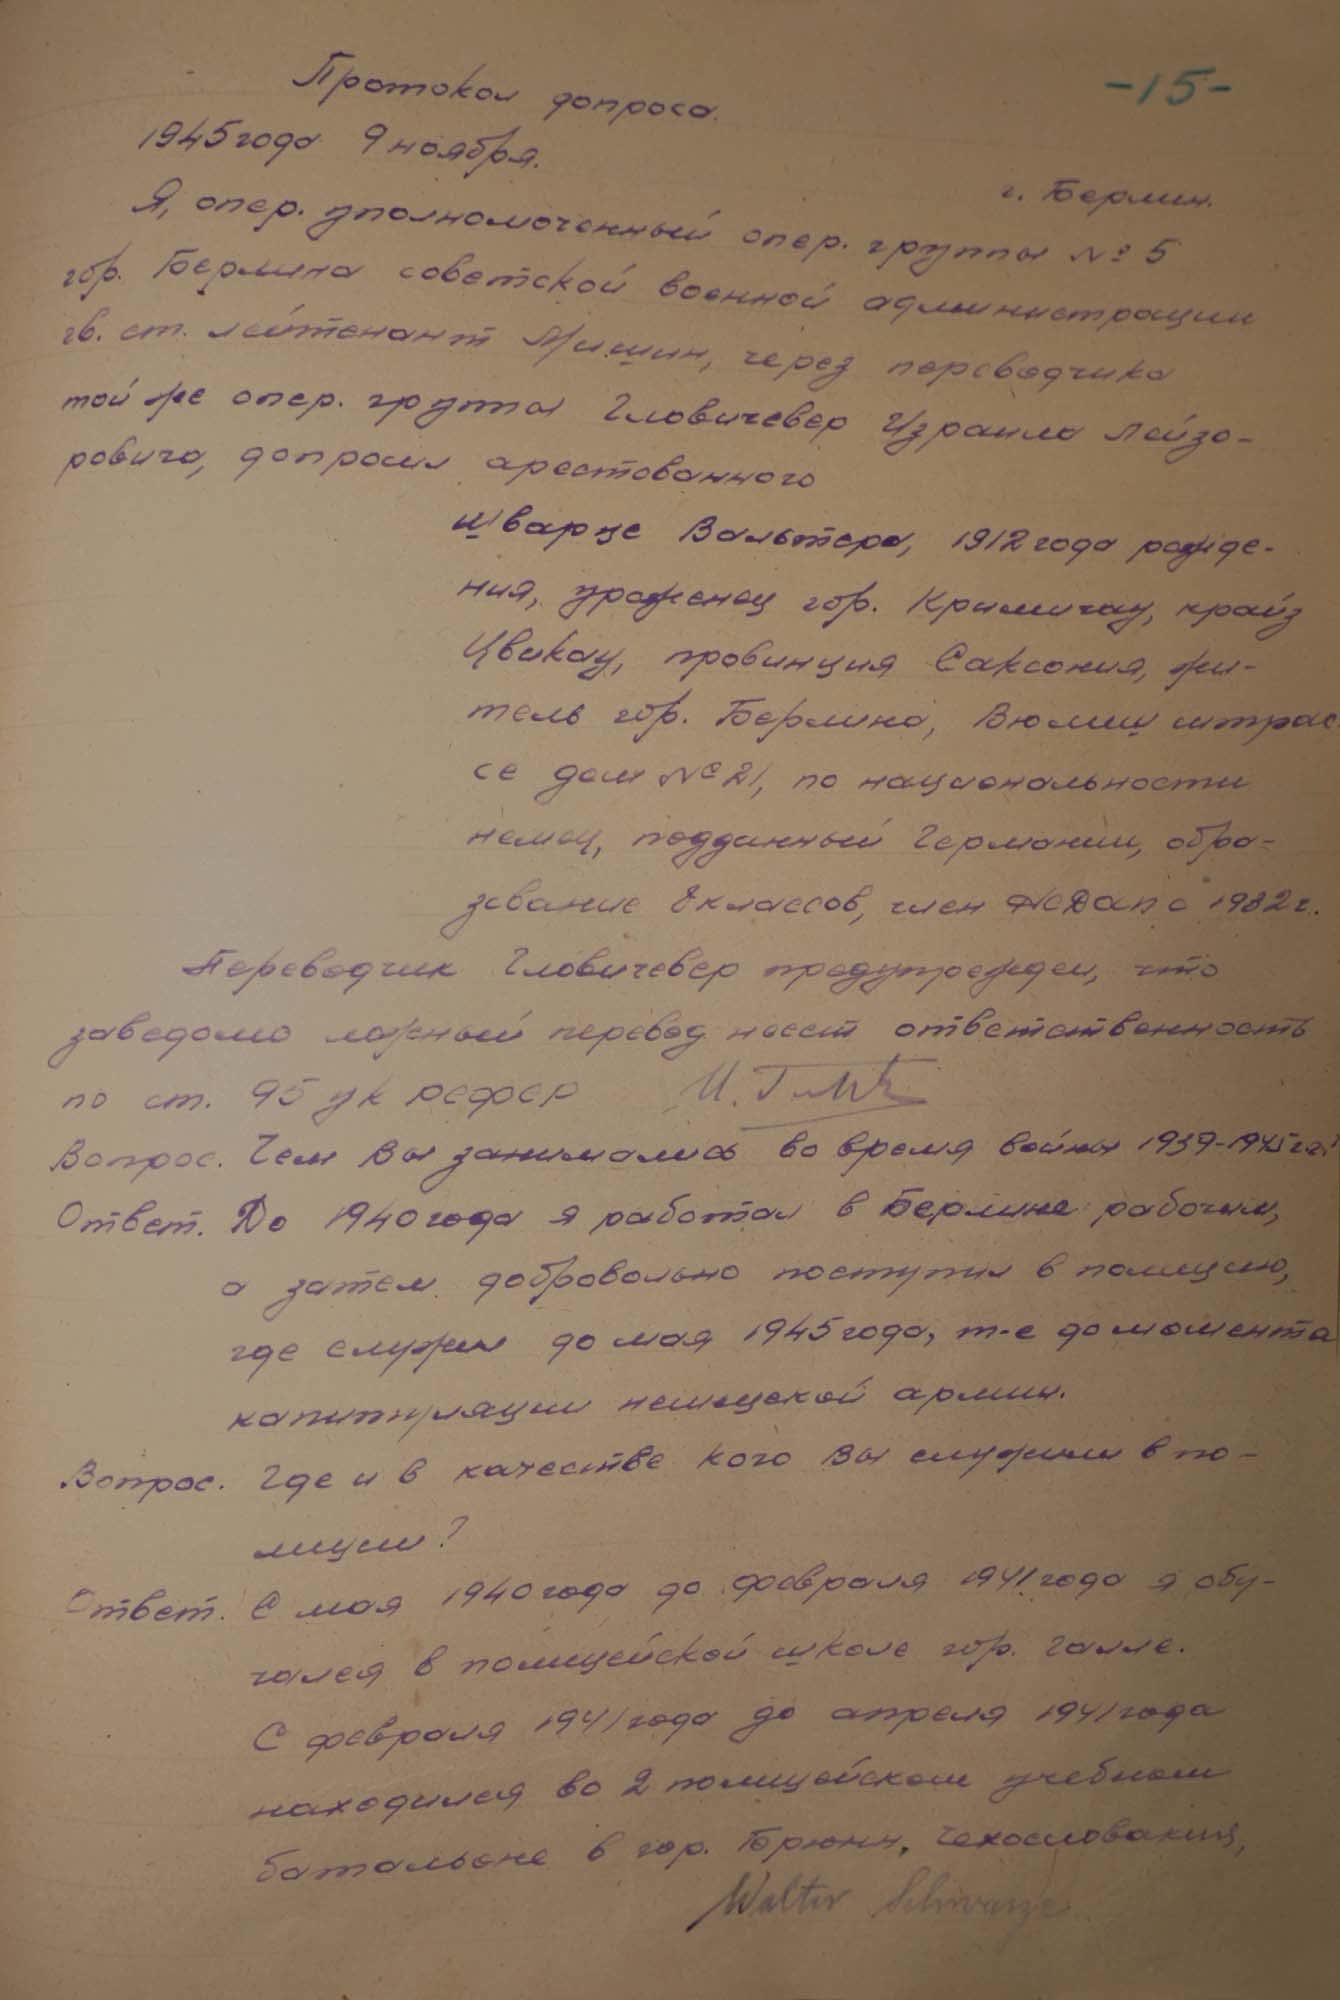 -15-
Протокол допроса.
1945 года 9 ноября.
г. Берлин.
Я, опер. уполномоченный опер. группы № 5
гор. Берлина советской военной администрации
гв. ст. лейтенант Яришин, через переводчика
той же опер. группы Гловичевер Израила Лейзо-
ровича, допросил арестованного
Шварце Вальтера, 1912 года рожде-
ния, уроженец гор. Кримичау, крайз
Цвикау, провинция Саксония, жи-
тель гор. Берлина, Вюлиш штрас
се дом № 21, по национальности
немец, подданный Германии, обра-
зование 8 классов, член НСДАП с 1932 г.
Переводчик Гловичевер предупрежден, что
заведомо ложный перевод несет ответственность
по ст. 95 УК РСФСР
Вопрос. Чем Вы занимались во время войны 1939-1945 г.г.?
Ответ. До 1940 года я работал в Берлине рабочим,
а затем добровольно поступил в полицию,
где служил до мая 1945 года, т-е до момента
капитуляции немецкой армии.
Вопрос. Где и в качестве кого Вы служили в по-
лиции?
Ответ. С мая 1940 года до февраля 1941 года я обу-
чался в полицейской школе гор. Галле.
С февраля 1941 года до апреля 1941 года
находился во 2 полицейском учебном
батальоне в гор. Брюнн, Чехословакия,
Walter Schwarze